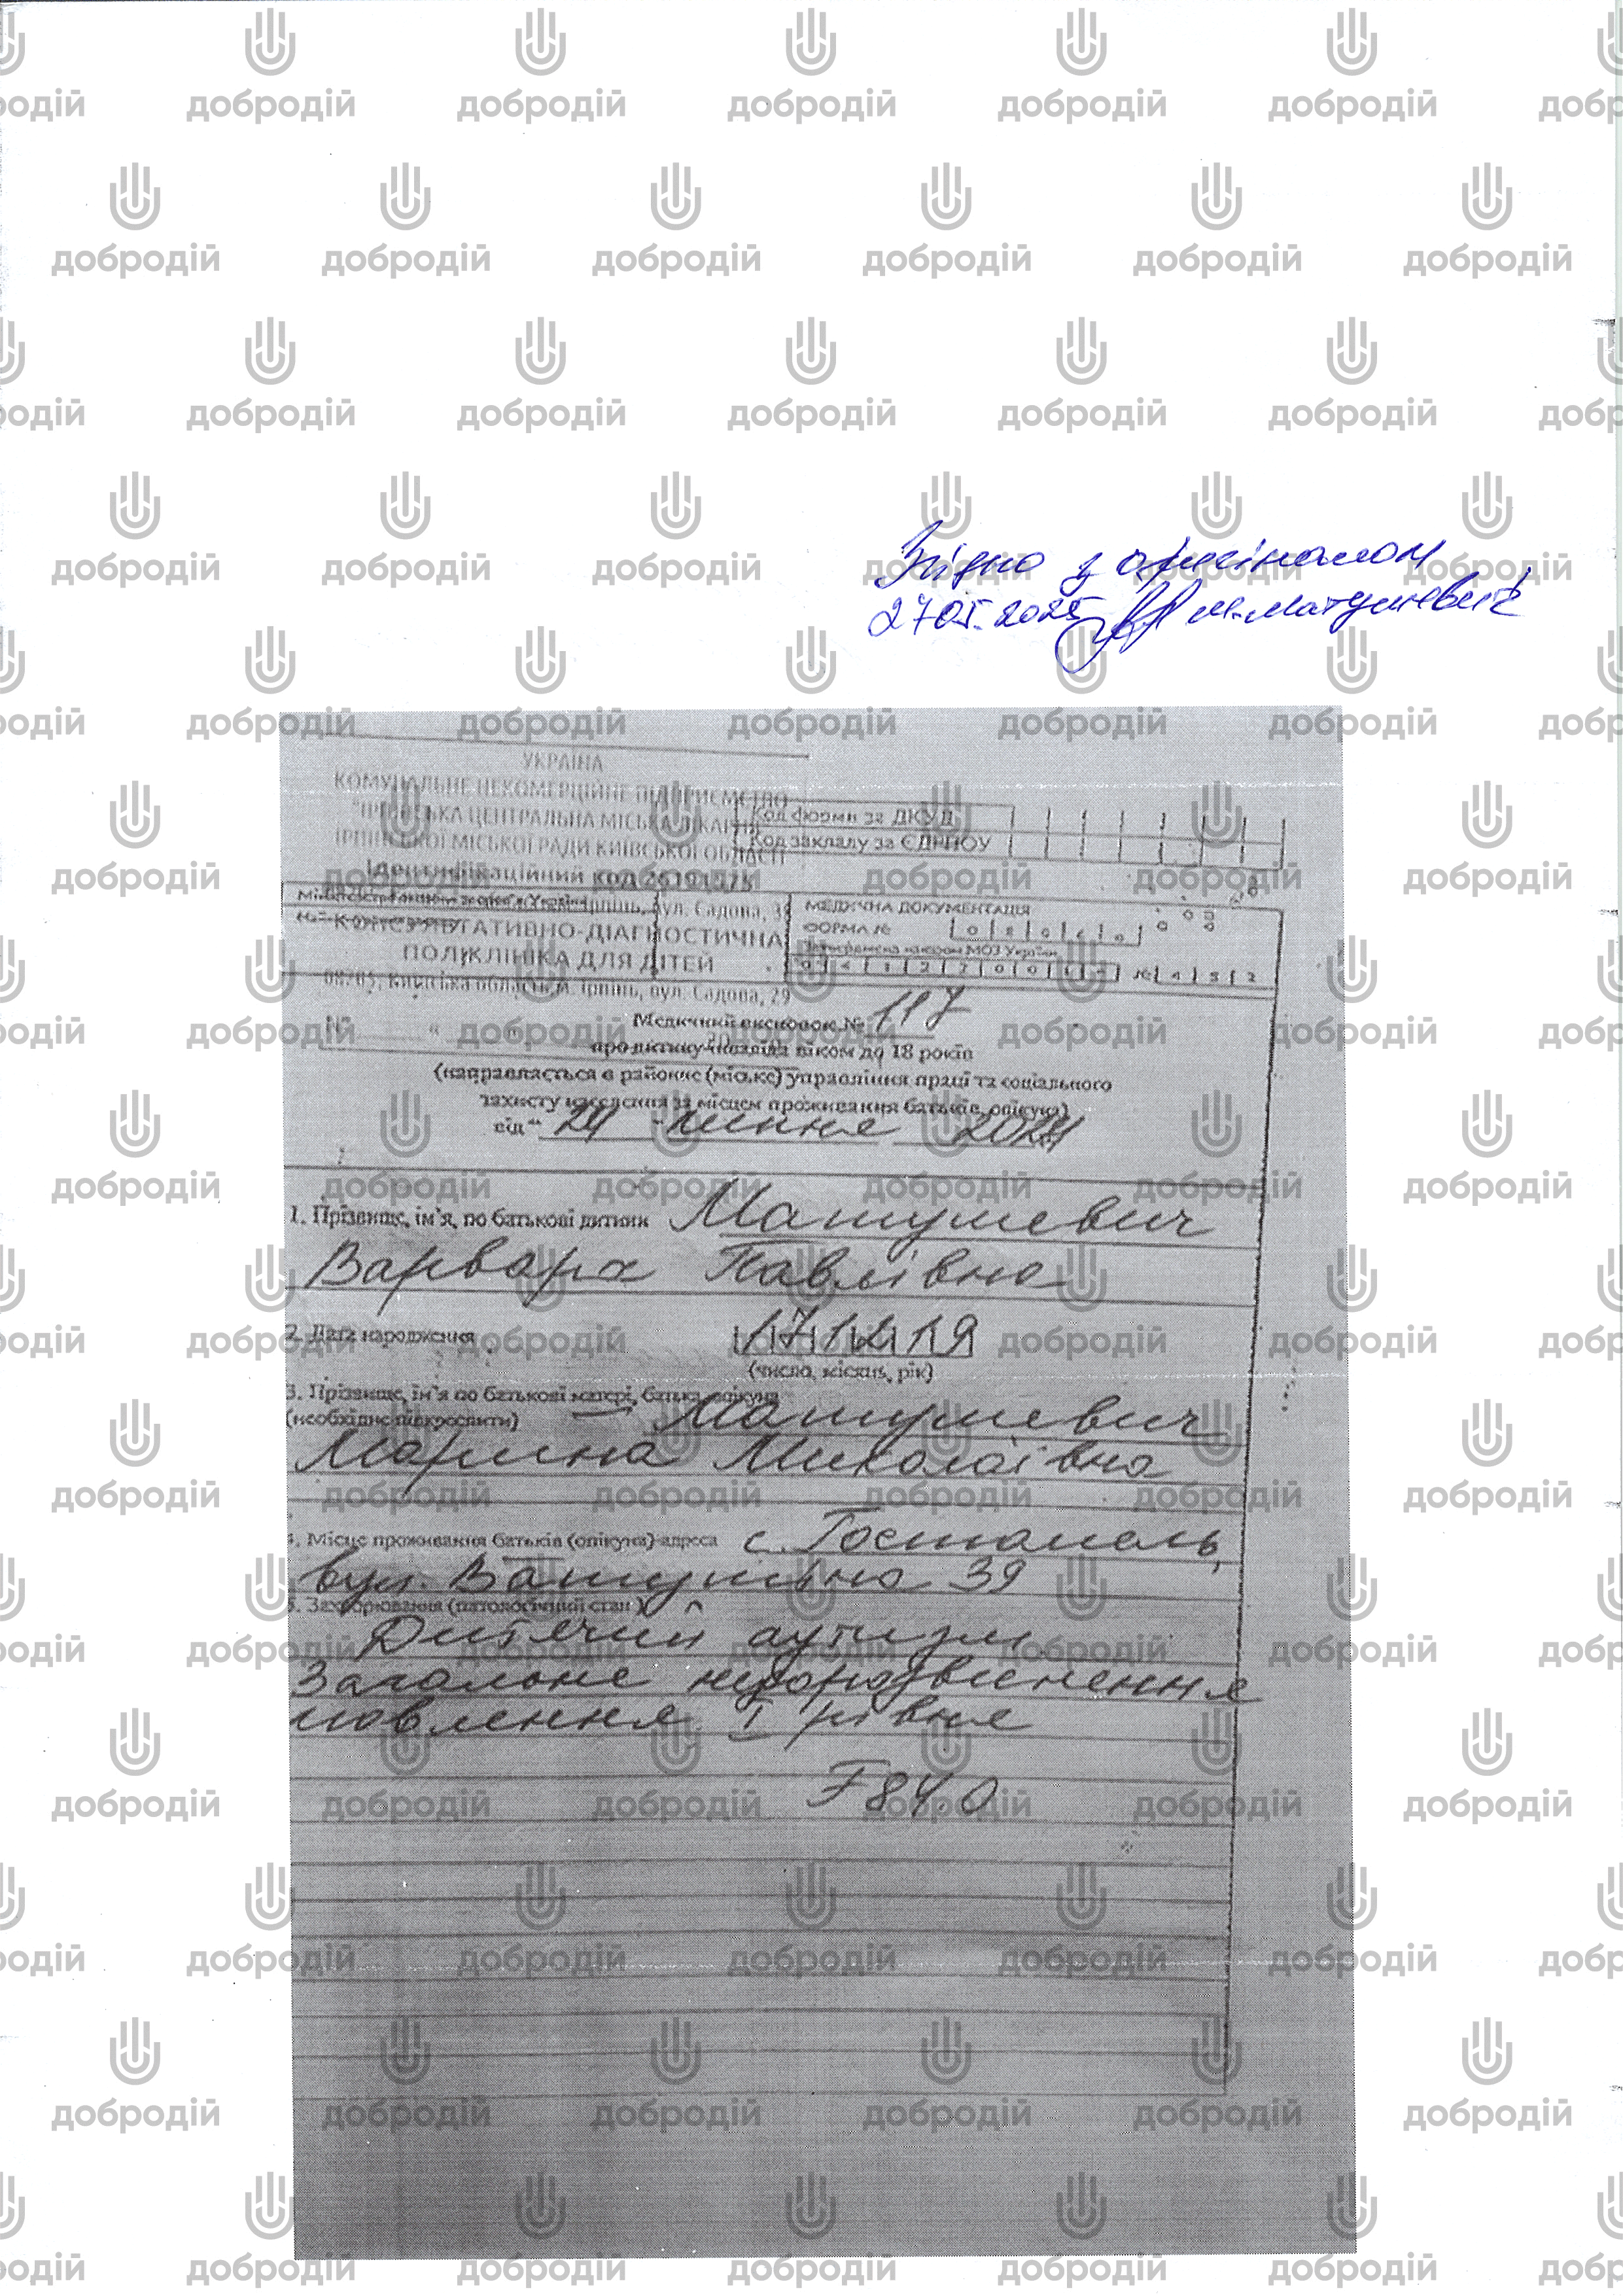 Згідно з оригіналом
27.05.2025 М.Матушевич
УКРАЇНА
КОМУНАЛЬНЕ НЕКОМЕРЦІЙНЕ ПІДПРИЄМСТВО
"ІРПІНСЬКА ЦЕНТРАЛЬНА МІСЬКА ЛІКАРНЯ"
ІРПІНСЬКОЇ МІСЬКОЇ РАДИ КИЇВСЬКОЇ ОБЛАСТІ
Ідентифікаційний код
Код форми за ДКУД
Код закладу за ЄДРПОУ
Ірпінь, вул. Садова, 38
КОНСУЛЬТАТИВНО-ДІАГНОСТИЧНА
ПОЛІКЛІНІКА ДЛЯ ДІТЕЙ
08205, Київська область, м. Ірпінь, вул. Садова, 29
МЕДИЧНА ДОКУМЕНТАЦІЯ
ФОРМА №
Затверджена наказом МОЗ України
Медичний висновок № 117
про дитину-інваліда віком до 18 років
(направляється в районне (міське) управління праці та соціального
захисту населення за місцем проживання батьків, опікуна)
від " 24 " липня 2024
1. Прізвище, ім'я, по батькові дитини Матушевич
Варвара Павлівна
2. Дата народження 171219
(число, місяць, рік)
3. Прізвище, ім'я по батькові матері, батька, опікуна
(необхідне підкреслити) Матушевич
Марина Миколаївна
4. Місце проживання батьків (опікуна)-адреса с. Гостомель,
вул. Ватутіна 39
5. Захворювання (патологічний стан)
Дитячий аутизм
Загальне недорозвинення
мовлення I рівня
F84.0
добродій